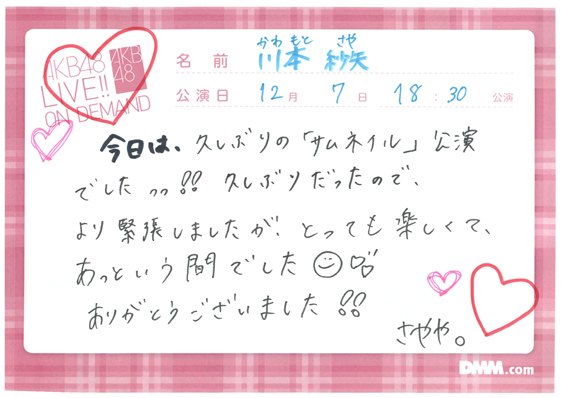 AKB48
LIVE!!
ON DEMAND
AKB
48
かわもと さや
名前 川本 紗矢
公演日 12月 7日 18:30 公演
今日は、久しぶりの「サムネイル」公演
でしたっっ!! 久しぶりだったので、
より緊張しましたが、とっても楽しくて、
あっという間でした
ありがとうございました!!
さやや。
DMM.com